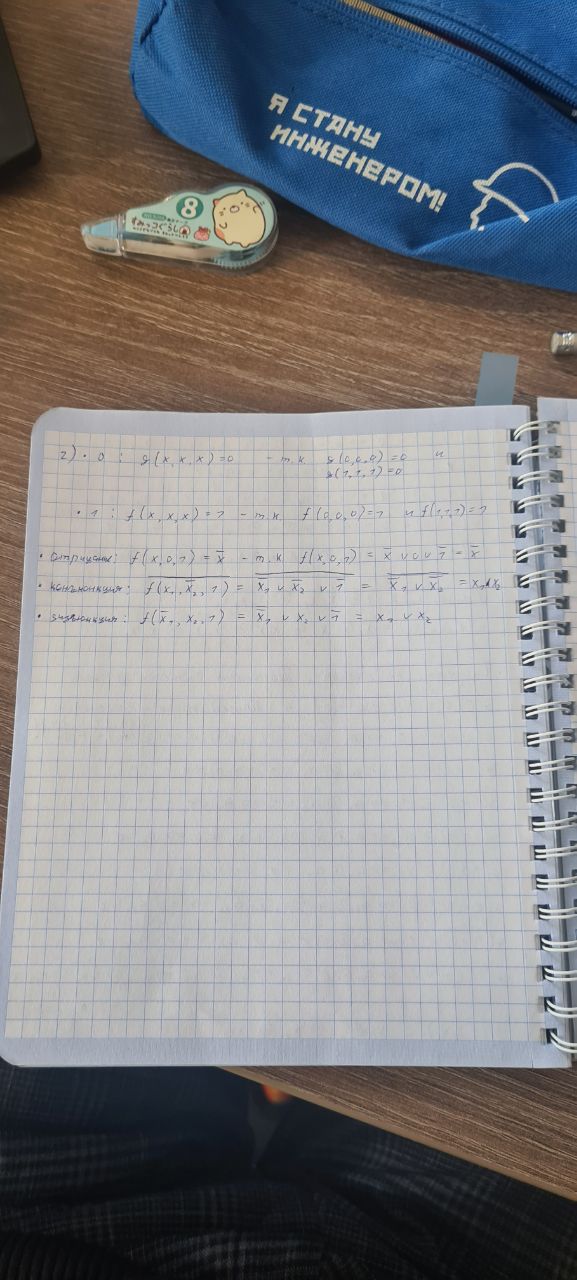 Я СТАНУ
ИНЖЕНЕРОМ!
8
すみっコぐらし
2) · 0 : g(x, x, x) = 0 - т.к. g(0,0,0) = 0 и
g(1,1,1) = 0
· 1 : f(x, x, x) = 1 - т.к. f(0,0,0) = 1 и f(1,1,1) = 1
· отрицание: f(x, 0, 1) = x̅ - т.к. f(x, 0, 1) = x̅ ∨ 0 ∨ 1̅ = x̅
· конъюнкция: f(x₁, x̅₂, 1) = x̅₁ ∨ x̅₂ ∨ 1̅ = x̅₁ ∨ x̅₂ = x₁ ∧ x₂
· дизъюнкция: f(x̅₁, x₂, 1) = x̅₁ ∨ x₂ ∨ 1̅ = x₁ ∨ x₂